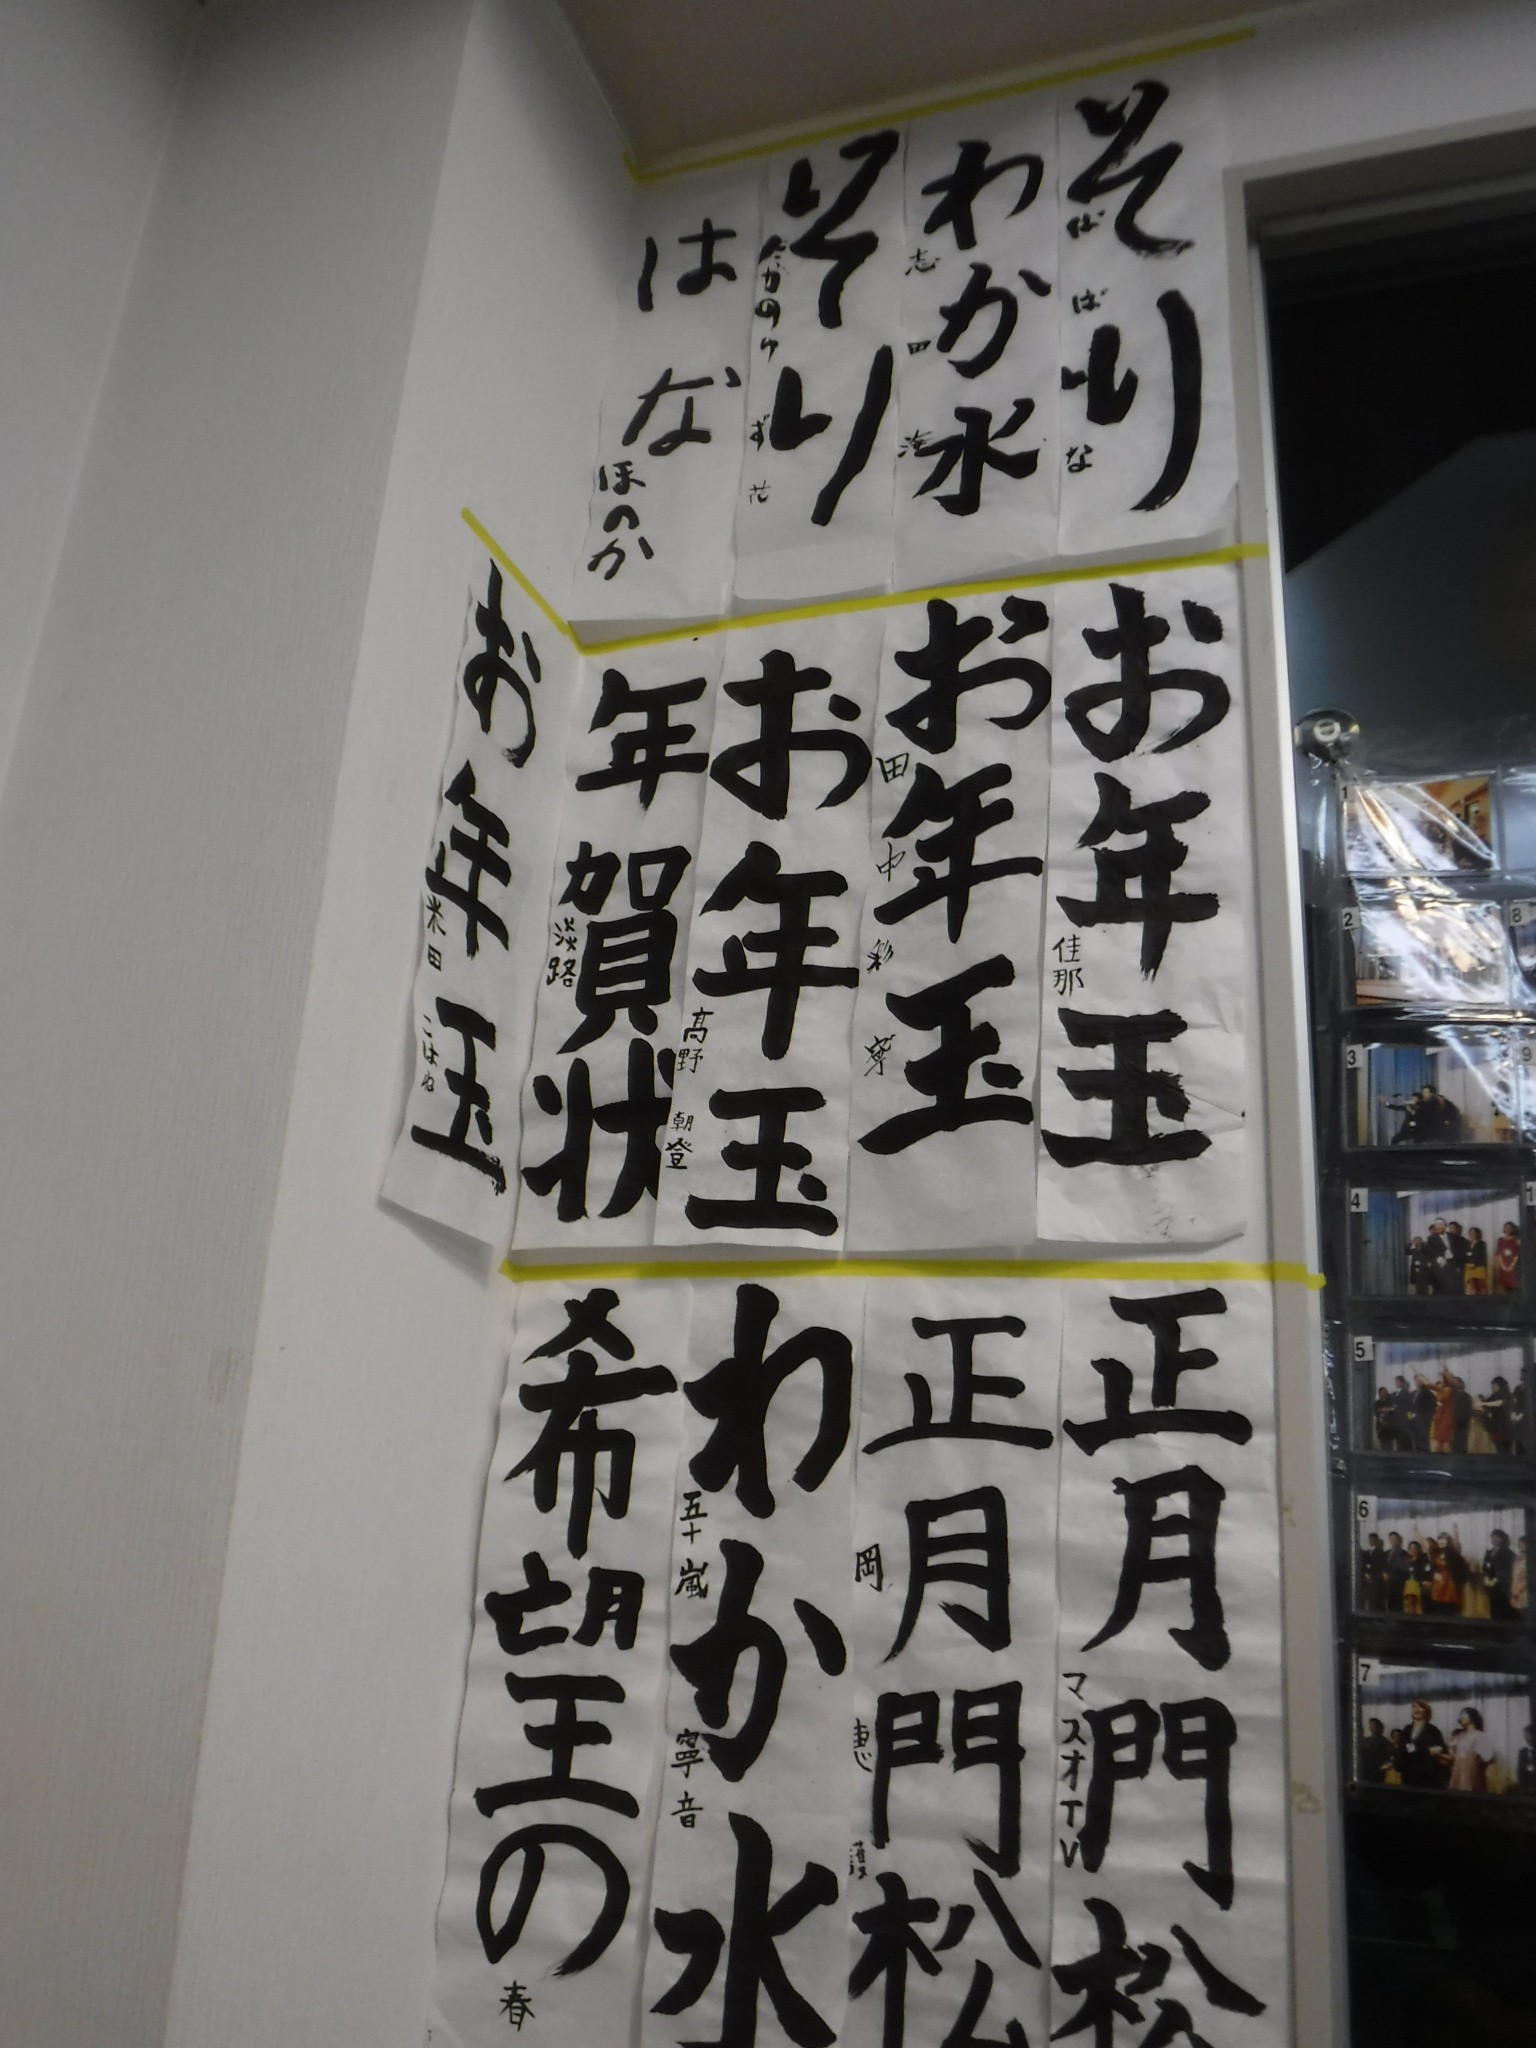 そり
ばばな
わか水
志田
そり
はな
ほのか
お年玉
佳那
お年玉
田中彩寧
お年玉
高野朝登
年賀状
淡路
お年玉
米田こはね
正月門松
マスオTV
正月門松
岡
わか水
五十嵐寧音
希望の
春
1
2
3
4
5
6
7
8
9